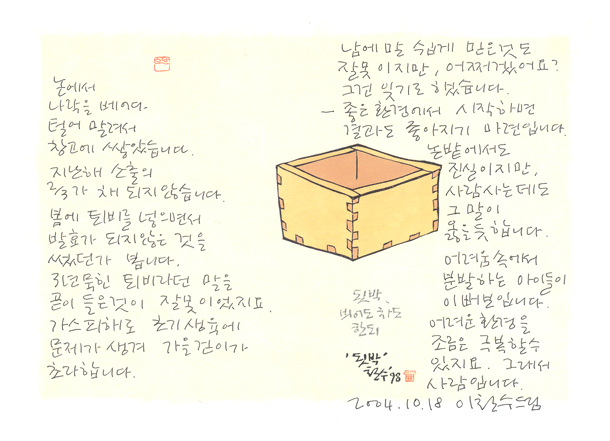 논에서
나락을 베어다
털어 말려서
창고에 쌓았습니다.
지난해 소출의
2/3가 채 되지않습니다.
봄에 퇴비를 넣으면서
발효가 되지않은 것을
썼었던가 봅니다.
3년묵힌 퇴비라던 말을
곧이 들은것이 잘못이었지요.
가스피해로 초기생육에
문제가 생겨 가을걷이가
초라합니다.
남에말 쉽게 믿은것도
잘못이지만, 어쩌겠어요?
그건 잊기로 하였습니다.
- 좋은환경에서 시작하면
결과도 좋아지기 마련입니다.
논밭에서도
진실이지만,
사람사는데도
그 말이
옳을듯합니다.
어려움속에서
분발하는 아이들이
이뻐보입니다.
어려운환경을
조금은 극복할수
있지요. 그래서
사람입니다.
2004.10.18 이철수드림
됫박.
비어도 차도
한되
'됫박'
철수'98